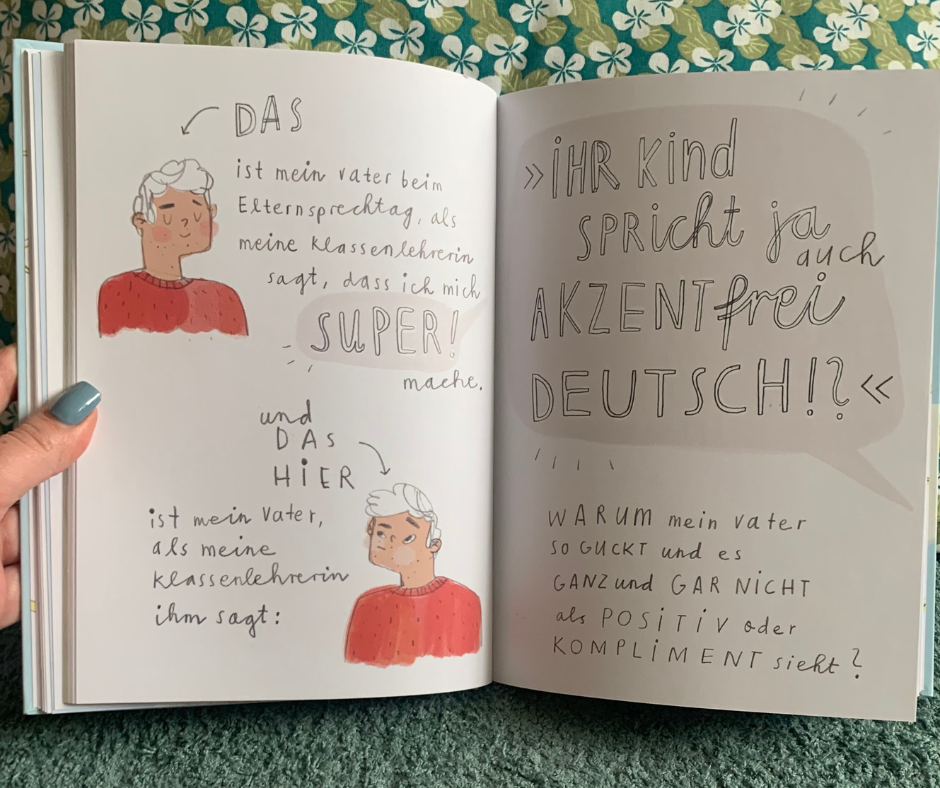 DAS
ist mein Vater beim
Elternsprechtag, als
meine Klassenlehrerin
sagt, dass ich mich
SUPER!
mache.
und
DAS
HIER
ist mein Vater,
als meine
Klassenlehrerin
ihm sagt:
»IHR Kind
SPRicht ja
auch
AKZENTfrei
DEUTSCH!?«
WARUM mein Vater
so GUCKT und es
GANZ und GAR NICHT
als POSiTiV oder
KOMPLiMENT sieht?